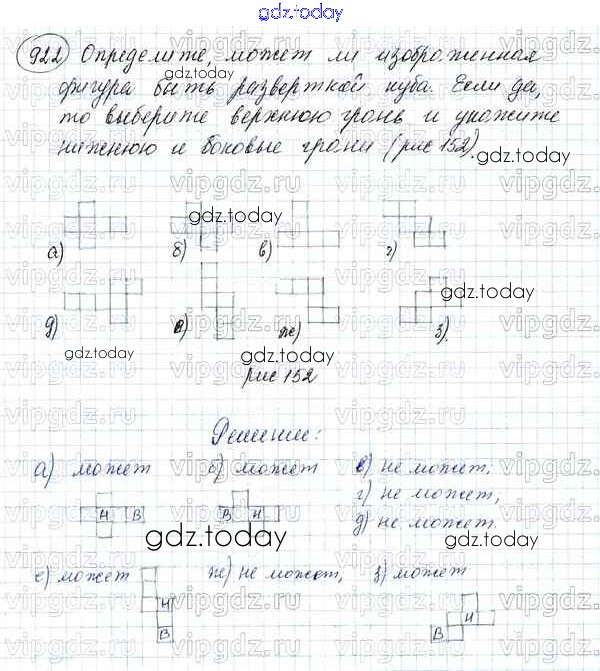 gdz.today
922 Определите, может ли изображенная
gdz.today
фигура быть разверткой куба. Если да,
то выберите верхнюю грань и укажите
нижнюю и боковые грани (рис 152).
gdz.today
gdz.today
а) б) в) г)
gdz.today
д) е) ж) з).
gdz.today
gdz.today
рис 152
Решение:
а) может б) может в) не может,
г) не может,
д) не может.
Н В В Н
gdz.today
gdz.today
е) может ж) не может, з) может
Н Н
В В
vipgdz.ru